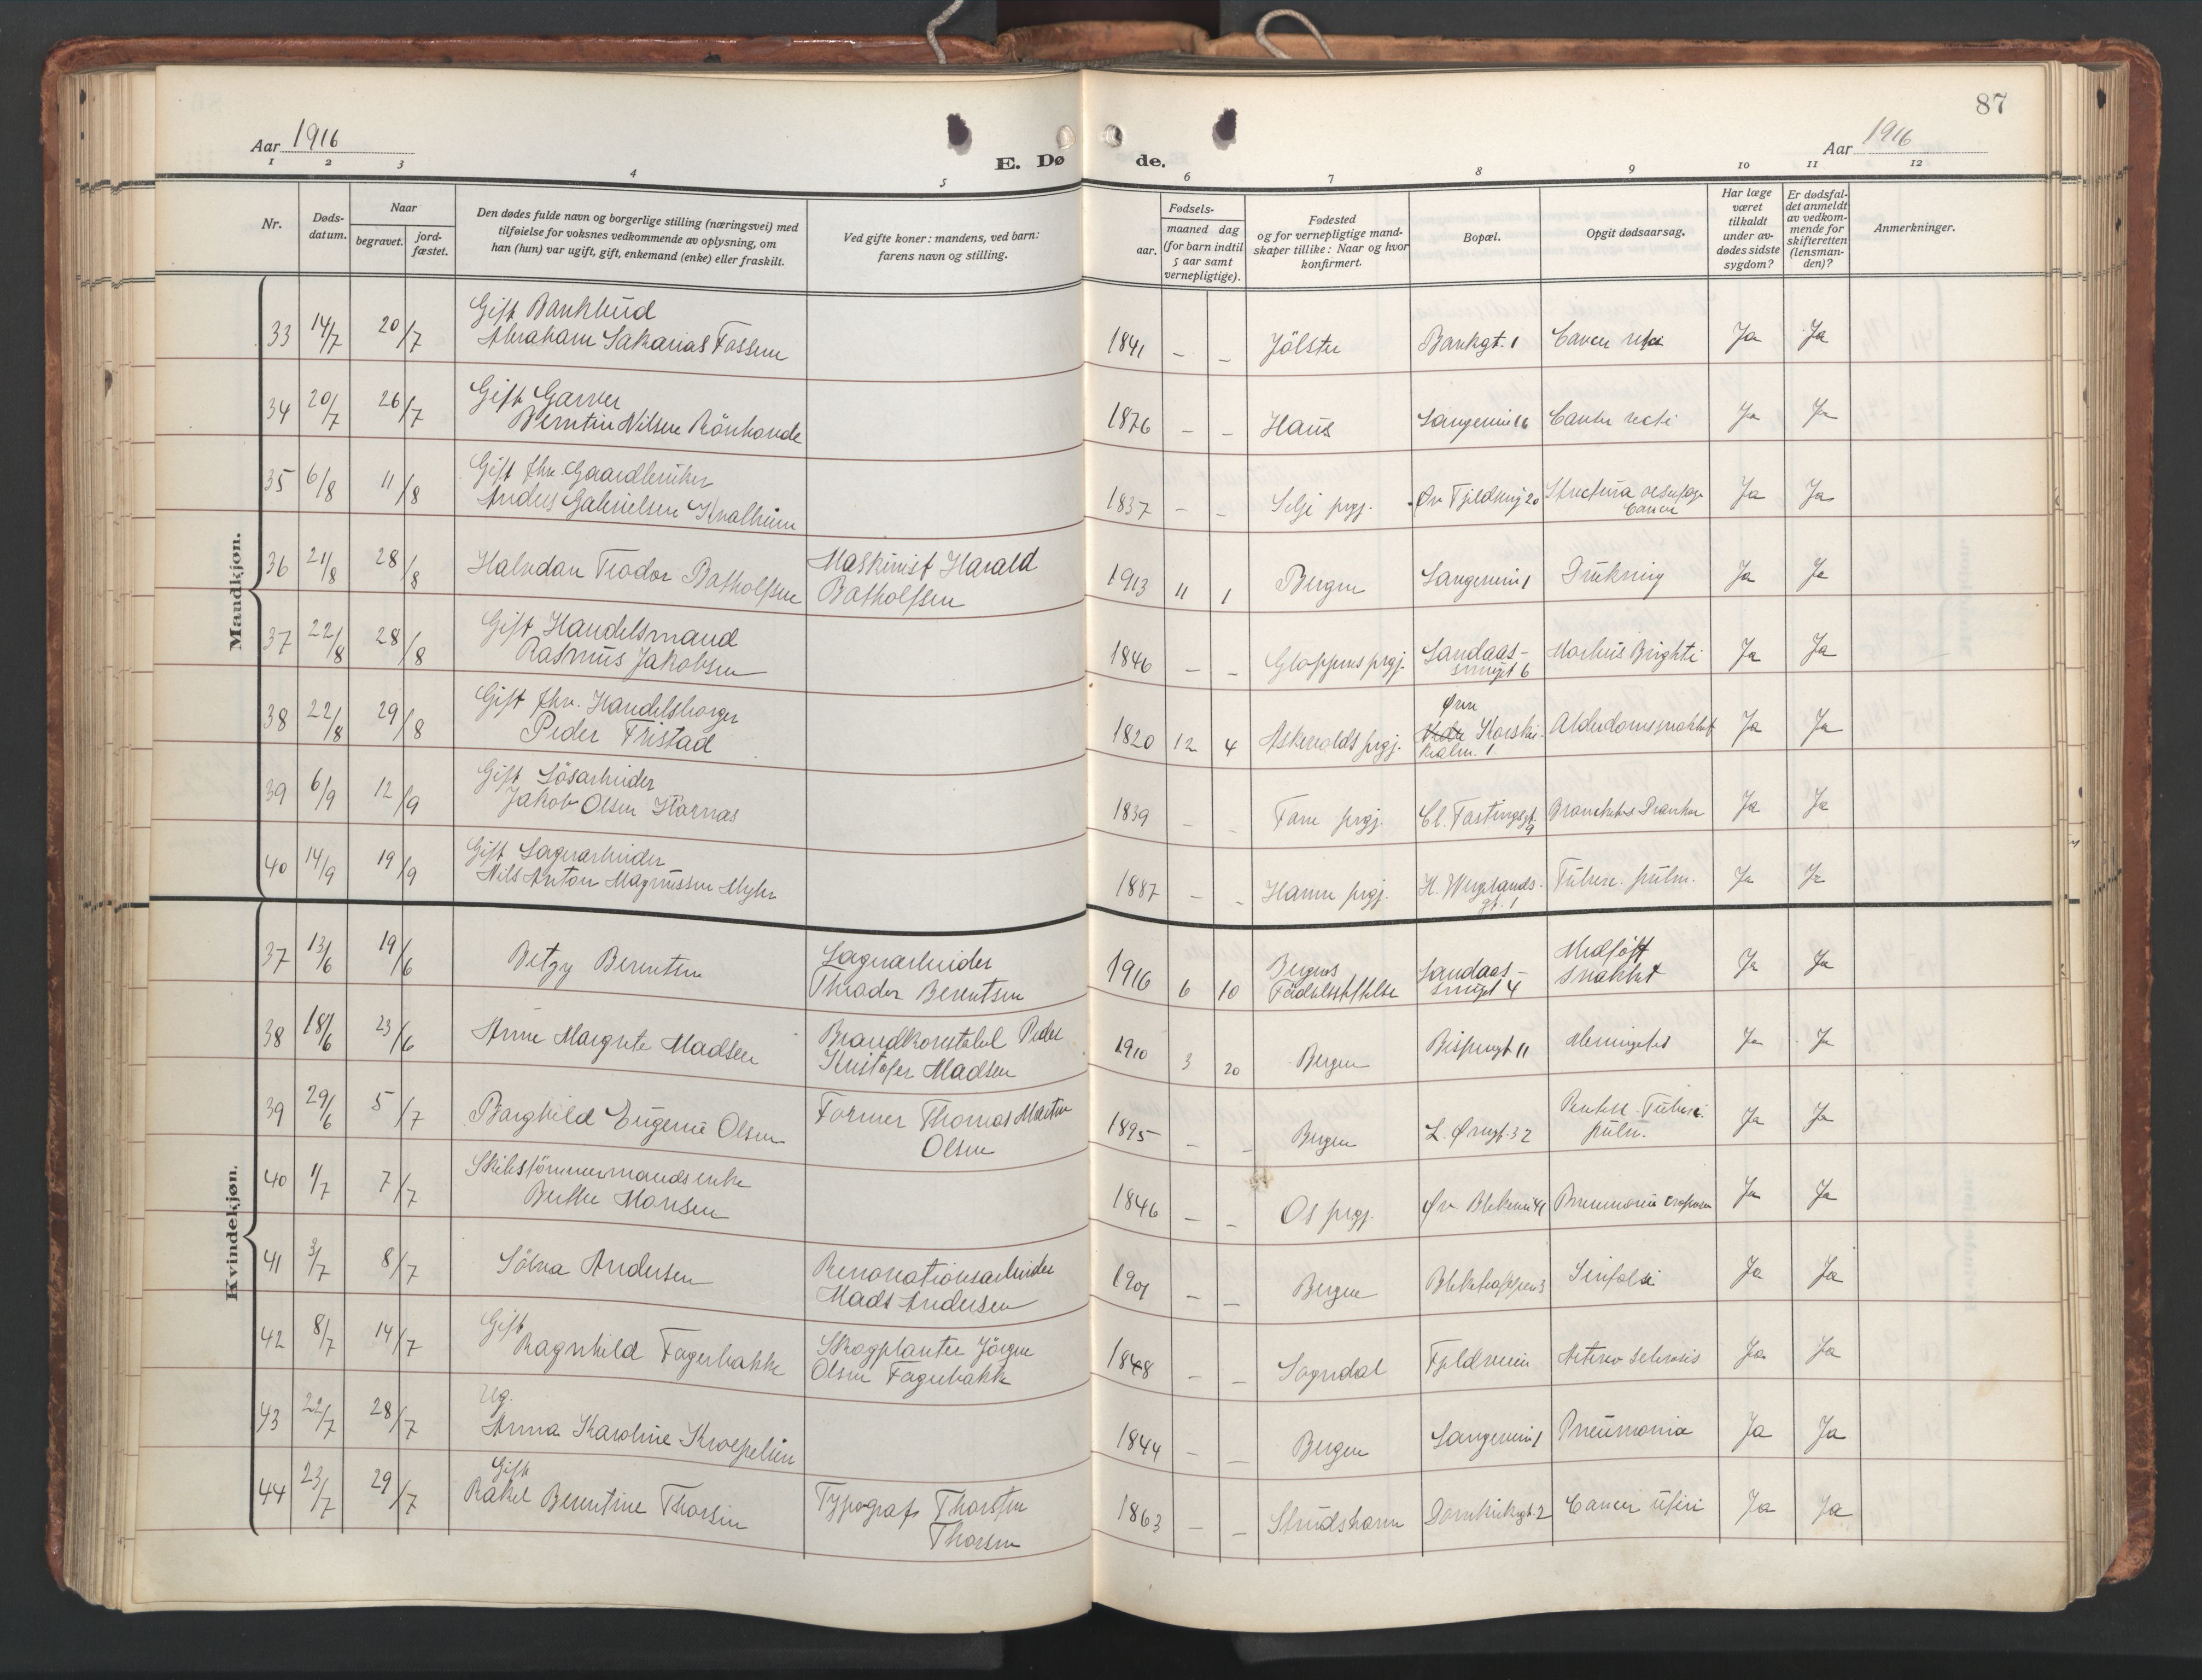 87
Aar 1916
E. Dø de.
Aar 1916
1 2 3 4 5 6 7 8 9 10 11 12
Nr.
Døds-
datum.
Naar
begravet.
jord-
fæstet.
Den dødes fulde navn og borgerlige stilling (næringsvei) med
tilføielse for voksnes vedkommende av oplysning, om
han (hun) var ugift, gift, enkemand (enke) eller fraskilt.
Ved gifte koner: mandens, ved barn:
farens navn og stilling.
Fødsels-
aar.
maaned dag
(for barn indtil
5 aar samt
vernepligtige).
Fødested
og for vernepligtige mand-
skaper tillike: Naar og hvor
konfirmert.
Bopæl.
Opgit dødsaarsag.
Har læge
været
tilkaldt
under av-
dødes sidste
sygdom?
Er dødsfal-
det anmeldt
av vedkom-
mende for
skifteretten
(lensman-
den)?
Anmerkninger.
Mandkjøn.
33 14/7 20/7 Gift Bankbud
Abraham Sakarias Fossen
1841 – – Jölster Bankgt. 1 Cancer Ja Ja
34 20/7 26/7 Gift Garver
Berntin Nilsen Rönhovde
1876 – – Haus Langeveien 16 Cancer recti Ja Ja
35 6/8 11/8 Gift fhv. Gaardbruker
Anders Gabrielsen Kvalheim
1837 – – Selje prgj. Øv Fjeldvei 20 Strictura oesofagi
Cancer Ja Ja
36 21/8 28/8 Halvdan Teodor Batholfsen Maskinist Harald
Batholfsen
1913 11 1 Bergen Langeveien 1 Drukning Ja Ja
37 22/8 28/8 Gift Handelsmand
Rasmus Jakobsen
1846 – – Gloppens prgj. Landaas-
smuget 6 Morbus Brighti Ja Ja
38 22/8 29/8 Gift fhv. Handelsborger
Peder Tristad
1820 12 4 Askevolds prgj. Øvre
Korskirkealm. 1 Alderdomssvakhet Ja Ja
39 6/9 12/9 Gift Løsarbeider
Jakob Olsen Starnas
1839 – – Fane prgj. Cl. Fastingsgt.
9 Ja Ja
40 14/9 19/9 Gift Lagerarbeider
Nils Anton Magnussen Myhr
1887 – – Hamre prgj. H. Wergelands-
gt. 1 Tuberc. pulm. Ja Ja
Kvindekjøn.
37 13/6 19/6 Betzy Berentsen Lagerarbeider
Theador Berentsen
1916 6 10 Bergens
Fødselsstiftelse Landaas-
smuget 4 Medfödt
svakhet Ja Ja
38 18/6 23/6 Anne Margrete Madsen Brandkonstabel Peder
Kristofer Madsen
1910 3 20 Bergen Bispengt 11 Meningitis Ja Ja
39 29/6 5/7 Borghild Eugenie Olsen Former Thomas Martin
Olsen
1895 – – Bergen L. Øvregt. 32 Tuberc.
pulm. Ja Ja
40 1/7 7/7 Skibstömmermands enke
Berthe Monsen
1846 – – Os prgj. Øv. Blekevei 41 Pneumonia crouposa Ja Ja
41 3/7 8/7 Sölva Andersen Renovationsarbeider
Mads Andersen
1901 – – Bergen Ja Ja
42 8/7 14/7 Gift
Ragnhild Fagerbakke Skogplanter Jörgen
Olsen Fagerbakke
1848 – – Sogndal Fjeldveien Arterio Sclerosis Ja Ja
43 22/7 28/7 Ug.
Anna Karoline Kroepelien
1844 – – Bergen Langeveien 1 Pneumonia Ja Ja
44 23/7 29/7 Gift
Rakel Berentine Thorsen Typograf Thorsten
Thorsen
1863 – – Studshavn Domkirkegt. 2 Cancer uteri Ja Ja